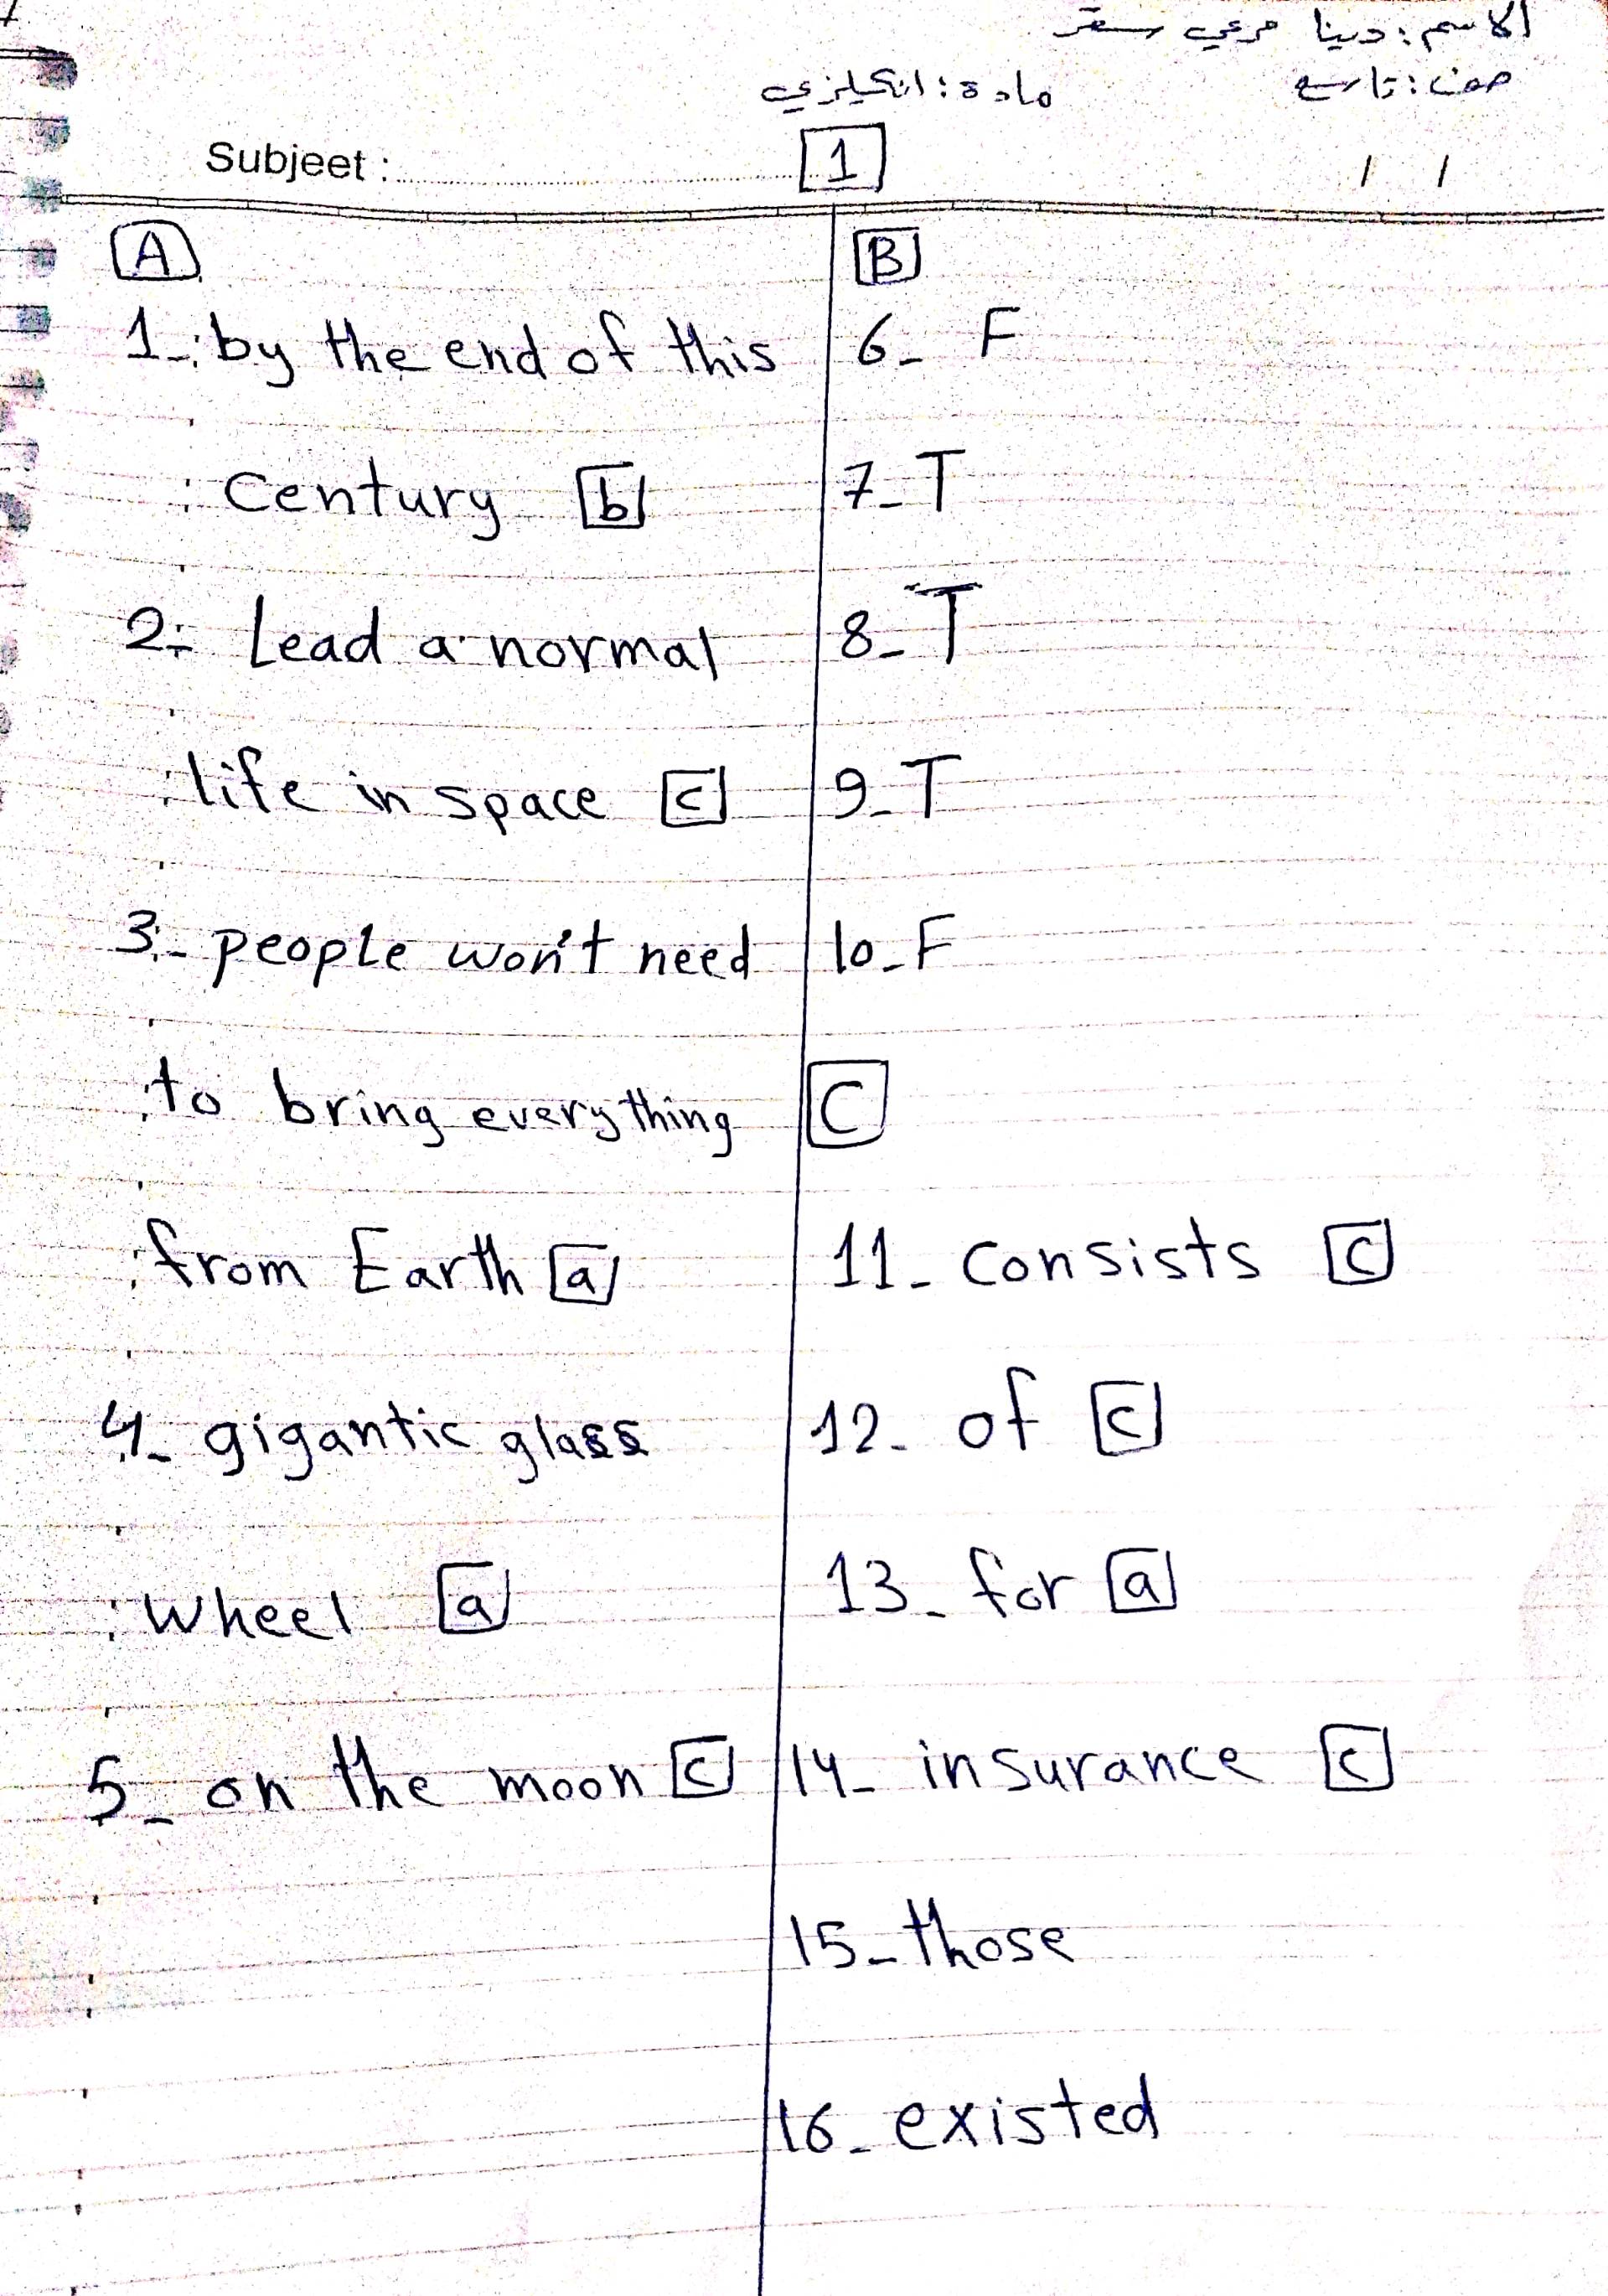 الاسم: دينا مرعي سقر
صف: تاسع
مادة: انكليزي
Subjeet :
1
/ /
A
1- by the end of this
Century b
2- Lead a normal
life in space c
3- people won't need
to bring everything
from Earth a
4- gigantic glass
wheel a
5- on the moon c
B
6- F
7- T
8- T
9- T
10- F
C
11- consists c
12- of c
13- for a
14- insurance c
15- those
16- existed